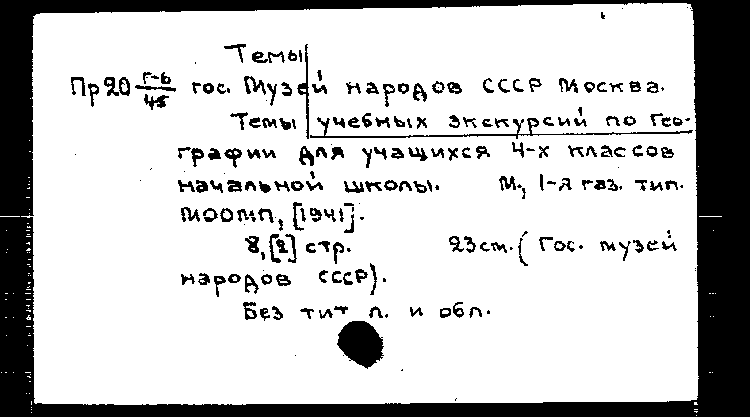 Темы
Пр20 г-6/45 гос. Музей народов СССР Москва.
Темы учебных экскурсий по Гео-
графии для учащихся 4-х классов
начальной школы. М., 1-я газ. тип.
МООМП, [1941].
8, [2] стр. 23 см. (Гос. музей
народов СССР).
Без тит л. и обл.